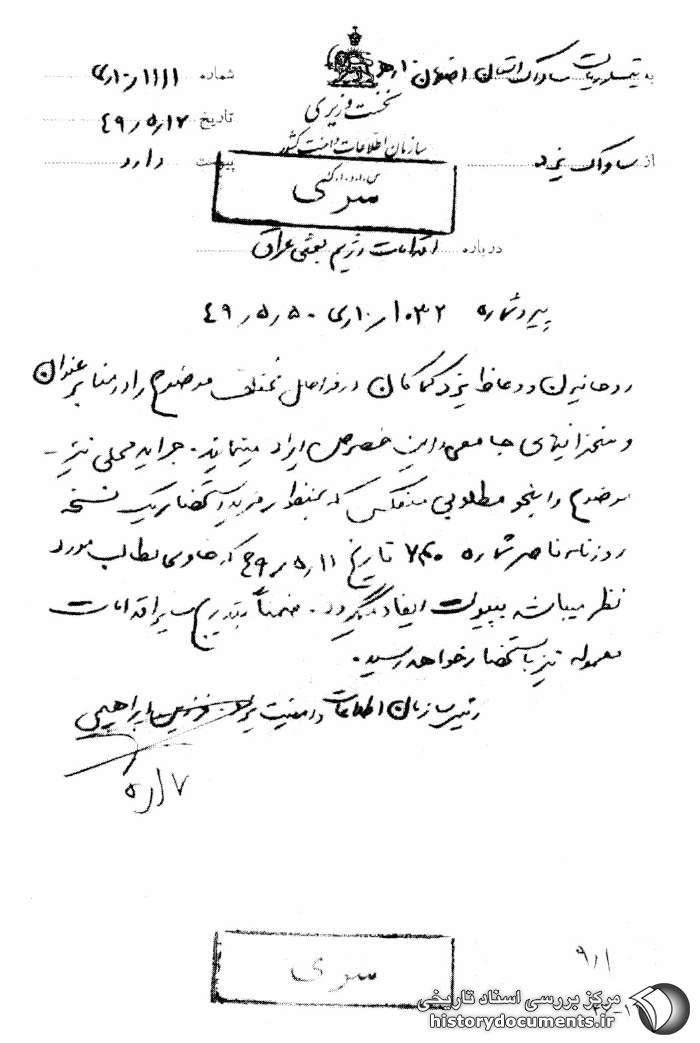 به تیمسار ریاست ساواک استان اصفهان ۱۰ ه‍
شماره ۱۱۱۱/۱۰ی
نخست وزیری
تاریخ ۴۹/۵/۱۷
سازمان اطلاعات و امنیت کشور
از ساواک یزد
پیوست دارد
س.ا.و.ا.ک
سری
درباره اقدامات رژیم بعثی عراق
پیرو شماره ۱۰۳۲/۱۰ی - ۴۹/۵/۵
روحانیون و وعاظ یزد کماکان در فواصل مختلف موضوع را در منابر عنوان
و سخنرانیهای جامعی در این خصوص ایراد مینمایند. جراید محلی نیز
موضوع را بنحو مطلوبی منعکس که بمنظور مزید استحضار یک نسخه
روزنامه ناصر شماره تاریخ ۴۹/۵/۱۱ که حاوی مطالب مورد
نظر میباشد بپیوست ایفاد میگردد. ضمناً بتدریج سایر اقدامات
معموله نیز باستحضار خواهد رسید.
رئیس سازمان اطلاعات و امنیت یزد ابراهیمی
۵/۱۷
سری
۹/۱
مرکز بررسی اسناد تاریخی
historydocuments.ir